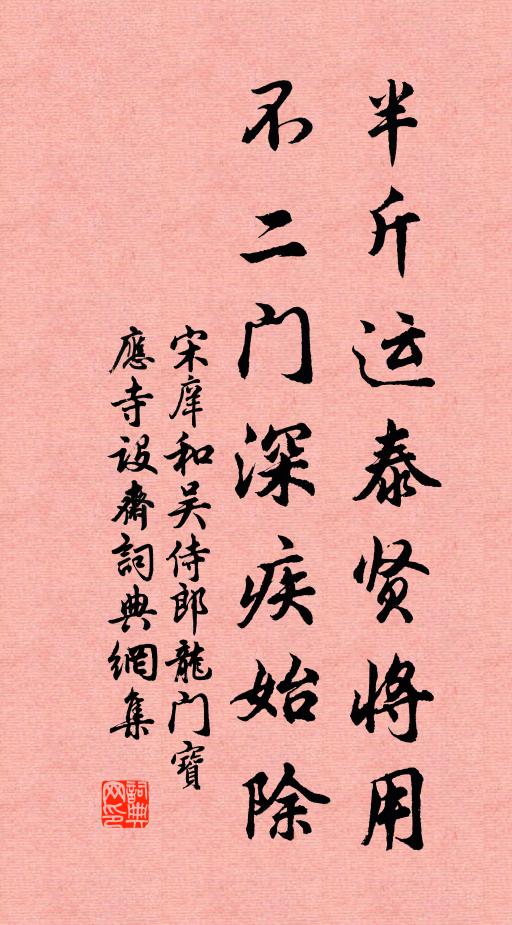 半斤运泰贤将用
不二门深疾始除
宋庠和吴侍郎龍门寶
應寺设齋詞典網集
詞典网印